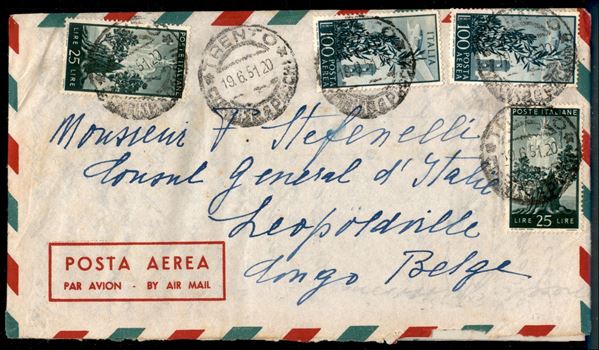 POSTE ITALIANE
25 LIRE
TRENTO
19.6.51.20
L.100 POSTA AEREA
ITALIA
L.100 POSTA AEREA
POSTE ITALIANE
LIRE 25 LIRE
51.20
Monsieur F. Stefenelli
Consul General d'Italie
Leopoldville
Congo Belge
POSTA AEREA
PAR AVION - BY AIR MAIL